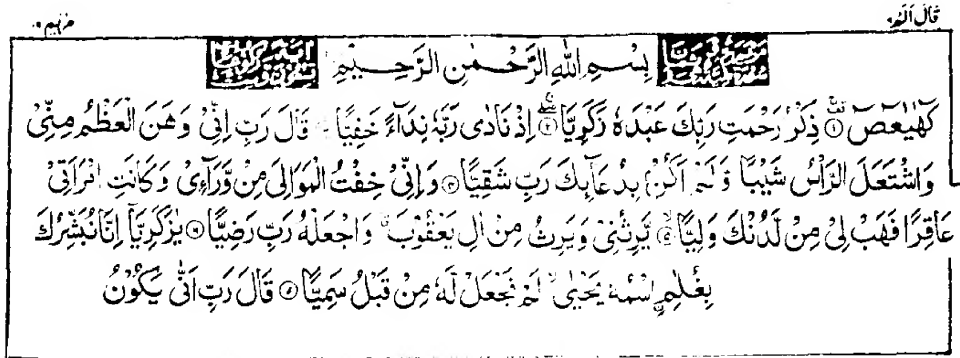 قال الم ١٦
مريم ١٩
بِسْمِ اللهِ الرَّحْمٰنِ الرَّحِيْمِ
كٓهٰيٰعٓصٓ ① ذِكْرُ رَحْمَتِ رَبِّكَ عَبْدَهٗ زَكَرِيَّا ② اِذْ نَادٰى رَبَّهٗ نِدَآءً خَفِيًّا قَالَ رَبِّ اِنِّىْ وَهَنَ الْعَظْمُ مِنِّىْ
وَاشْتَعَلَ الرَّاْسُ شَيْبًا وَّلَمْ اَكُنْۢ بِدُعَآئِكَ رَبِّ شَقِيًّا ④ وَاِنِّىْ خِفْتُ الْمَوَالِىَ مِنْ وَّرَآءِىْ وَكَانَتِ امْرَاَتِىْ
عَاقِرًا فَهَبْ لِىْ مِنْ لَّدُنْكَ وَلِيًّا ⑤ يَّرِثُنِىْ وَيَرِثُ مِنْ اٰلِ يَعْقُوْبَ وَاجْعَلْهُ رَبِّ رَضِيًّا ⑥ يٰزَكَرِيَّآ اِنَّا نُبَشِّرُكَ
بِغُلٰمِ ِۨاسْمُهٗ يَحْيٰى لَمْ نَجْعَلْ لَّهٗ مِنْ قَبْلُ سَمِيًّا ⑦ قَالَ رَبِّ اَنّٰى يَكُوْنُ